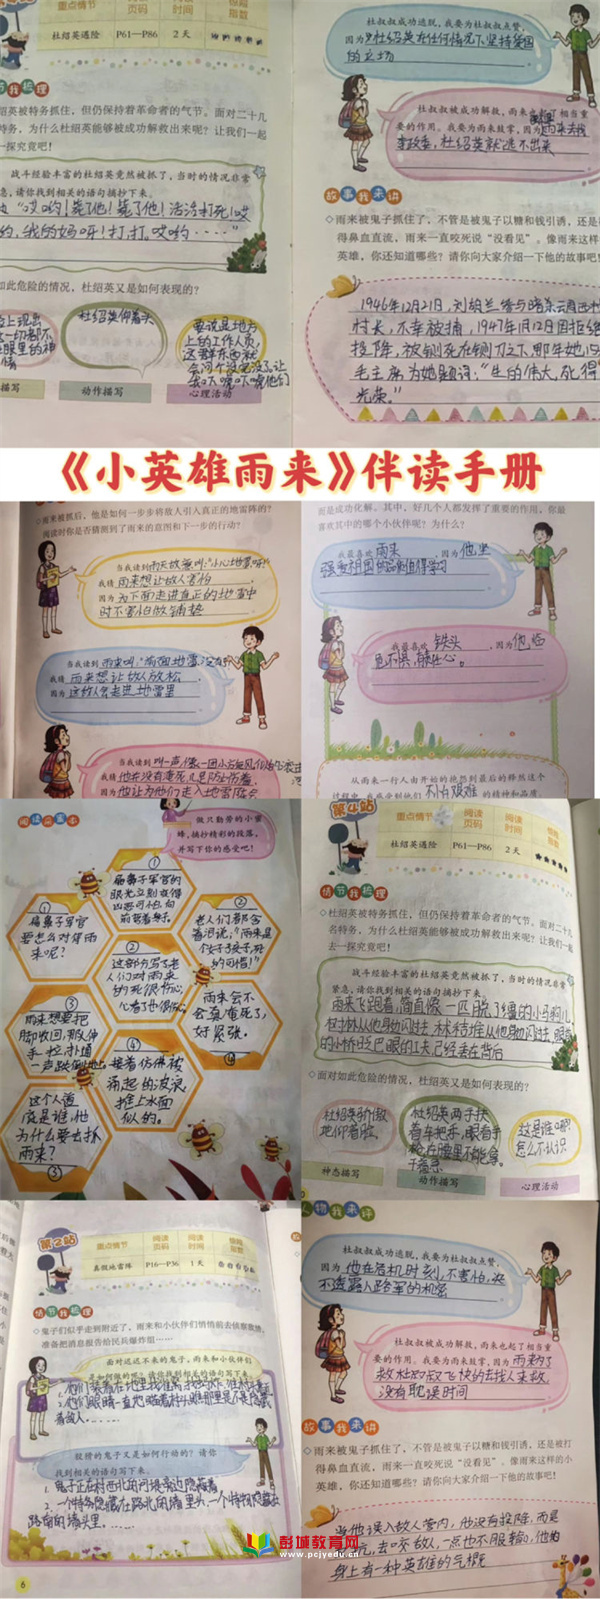 重点情节
阅读页码
阅读时间
惊险指数
杜绍英遇险
P61—P86
2天
情节我梳理
绍英被特务抓住，但仍保持着革命者的气节。面对二十几
特务，为什么杜绍英能够被成功解救出来呢？让我们一起
一探究竟吧！
战斗经验丰富的杜绍英竟然被抓了，当时的情况非常
急，请你找到相关的语句摘抄下来。
“哎哟！毙了他！毙了他！活活打死！哎
哟，我的妈呀！打，打。哎哟……”
如此危险的情况，杜绍英又是如何表现的？
杜绍英仰着头
要说是地方
上的工作人员，
描写
动作描写
心理活动
杜叔叔成功逃脱，我要为杜叔叔点赞，
因为
杜绍英在任何情况下坚持爱国
的立场
杜叔叔被成功解救，雨来也起了相当重
要的作用。我要为雨来鼓掌，因为
雨来去找
李政委，杜绍英就逃不出来
故事我来讲
◇雨来被鬼子抓住了，不管是被鬼子以糖和钱引诱，还是
得鼻血直流，雨来一直咬死说“没看见”。像雨来这样
英雄，你还知道哪些？请你向大家介绍一下他的故事吧
1946年12月21日，刘胡兰参与暗杀云周西村
村长，不幸被捕，1947年1月12日因拒绝
投降，被铡死在铡刀之下，那年她15
毛主席为她题词：“生的伟大，死得
光荣。”
《小英雄雨来》伴读手册
◇雨来被抓后，他是如何一步步将敌人引入真正的地雷阵的？
阅读时你是否猜测到了雨来的意图和下一步的行动？
当我读到雨来故意叫：“小心地雷呀！”
我猜 雨来想让敌人害怕
因为 为下面走进真正的地雷中
时不害怕做铺垫
当我读到 雨来叫：“前面地雷没有
我猜 雨来想让敌人放松
因为 这敌人会走进地雷里
当我读到 叫一声，像一团小旋风似的
我猜
因为 他让为他们走入地雷阵会
而是成功化解。其中，好几个人都发挥了重要的作用，你最
喜欢其中的哪个小伙伴呢？为什么？
我最喜欢 雨来 ，因为 他坚
强爱祖国的品格值得学习
我最喜欢 铁头 ，因为 他临
危不惧，有责任心。
从雨来一行人由开始的抱怨到最后的释然这个
过程中，我感受到他们 不怕艰难 的精神和品质。
阅读小蜜本
做只勤劳的小蜜
蜂，摘抄精彩的段落，
并写下你的感受吧！
①
扁鼻子军官的
眼光立刻变得
凶恶可怕，向
前弯着身子。
扁鼻子军官
要怎么对待雨
来呢？
②
老人们都含
着泪说：“雨来是
个好孩子，死
的可惜！”
②
这部分写了老
人们对雨来
的死很伤心，
心看了也很伤心。
③
雨来想要把
脚收回，那人伸
手一拉，扑通
一声跌倒地上
雨来会不
会真淹死了，
好紧张。
④
接着仿佛被
涌起的波浪
推上水面
似的。
这个人道
底是谁，他
为什么要去抓
雨来？
③
第4站
重点情节
阅读页码
阅读时间
惊险指数
杜绍英遇险
P61—P86
2天
情节我梳理
◇杜绍英被特务抓住，但仍保持着革命者的气节。面对二十几
名特务，为什么杜绍英能够被成功解救出来呢？让我们一起
去一探究竟吧！
战斗经验丰富的杜绍英竟然被抓了，当时的情况非常
紧急，请你找到相关的语句摘抄下来。
雨来飞跑着，简直像一匹脱了缰的小马驹儿，
村小林从他身边闪过去，林秸堆从他身边闪过去，眼前
的小桥眨巴眼的工夫，已经丢在背后
◇面对如此危险的情况，杜绍英又是如何表现的？
杜绍英骄傲
地仰着脸，
杜绍英两手扶
着车把手，眼看手
枪在腰里不能拿
干着急
这是谁呀？
怎么不认识
神态描写
动作描写
心理活动
第2站
重点情节
阅读页码
阅读时间
惊险指数
真假地雷阵
P16—P36
1天
情节我梳理
◇鬼子们似乎走到附近了，雨来和小伙伴们悄悄前去侦察敌情，
准备把消息报告给民兵爆炸组……
面对迟迟不来的鬼子，雨来和小伙伴们
是如何做的呢？请你找到相关的语句写下来。
狡猾的鬼子又是如何行动的？请你
找到相关的语句写下来。
1. 鬼子正在村西北的河堤旁边隐蔽着
路南的墙头里。……
6
人物我来评
杜叔叔成功逃脱，我要为杜叔叔点赞，
因为 他在危机时刻，不害怕，决
不透露八路军的机密
杜叔叔被成功解救，雨来也起了相当重
要的作用。我要为雨来鼓掌，因为 雨来为了
救杜叔叔飞快的去找人来救
没有耽误时间
故事我来讲
◇雨来被鬼子抓住了，不管是被鬼子以糖和钱引诱，还是被打
得鼻血直流，雨来一直咬死说“没看见”。像雨来这样的小
英雄，你还知道哪些？请你向大家介绍一下他的故事吧！
当他误入敌人营内，他没有投降，而是
去咬敌人，一点也不服输，他的
身上有一种英雄的气概
彭城教育网
www.pcjyedu.cn